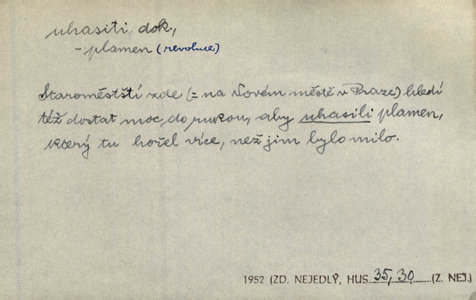 uhasiti dok.,
- plamen (revoluce)
Staroměstští zde (= na Novém městě v Praze) hledí
též dostat moc do rukou, aby uhasili plamen,
který tu hořel více, než jim bylo milo.
1952 (ZD. NEJEDLÝ, HUS 35, 30 (Z. NEJ.)